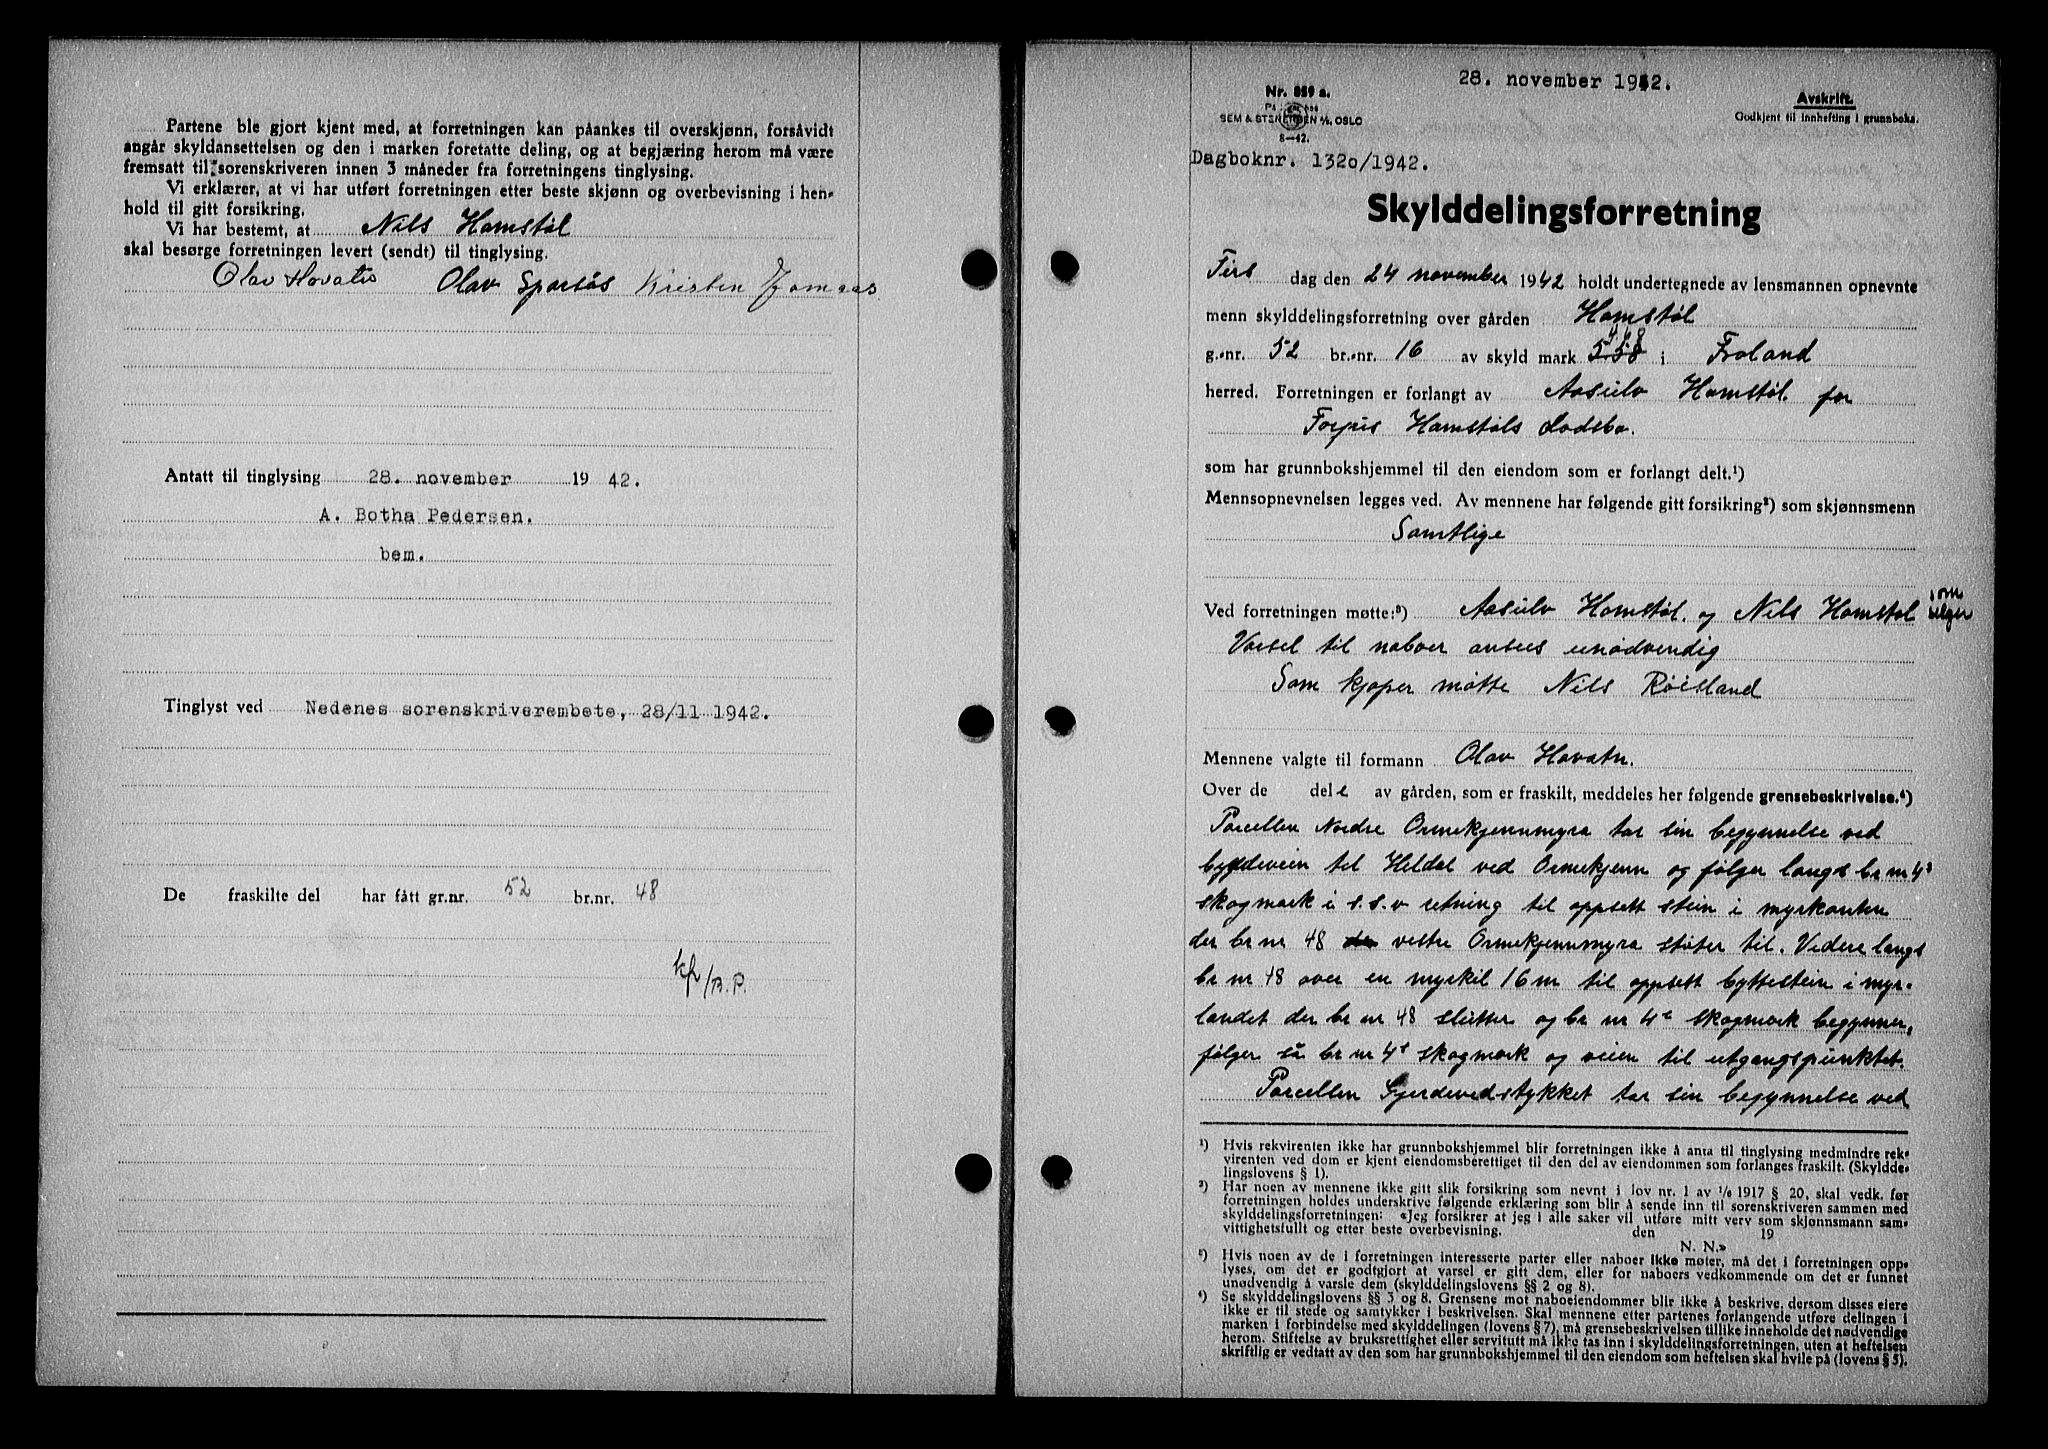 Partene ble gjort kjent med, at forretningen kan påankes til overskjønn, forsåvidt
angår skyldansettelsen og den i marken foretatte deling, og at begjæring herom må være
fremsatt til sorenskriveren innen 3 måneder fra forretningens tinglysing.
Vi erklærer, at vi har utført forretningen etter beste skjønn og overbevisning i hen-
hold til gitt forsikring.
Vi har bestemt, at Nils Hamstøl
skal besørge forretningen levert (sendt) til tinglysing.
Olav Hovatn Olav Sparsås Kristen Jomaas
Antatt til tinglysing 28. november 1942.
A. Botha Pedersen.
bem.
Tinglyst ved Nedenes sorenskriverembete, 28/11 1942.
De fraskilte del har fått gr.nr. 52 br.nr. 48
kf/B.P.
28. november 1942.
Nr. 859 a.
SEM & STENERSEN A/S, OSLO
8—42.
Avskrift.
Godkjent til innhefting i grunnboka.
Dagboknr. 1320/1942.
Skylddelingsforretning
Tirs dag den 24 november 1942 holdt undertegnede av lensmannen opnevnte
menn skylddelingsforretning over gården Hamstøl
g.-nr. 52 br.-nr. 16 av skyld mark i Froland
herred. Forretningen er forlangt av Aasulv Hamstøl for
Torjus Hamstøls dødsbo.
som har grunnbokshjemmel til den eiendom som er forlangt delt.¹)
Mennsopnevnelsen legges ved. Av mennene har følgende gitt forsikring²) som skjønnsmenn
Samtlige
Ved forretningen møtte:³) Aasulv Hamstøl og Nils Hamstøl som selger
Varsel til naboer ansees unødvendig
Som kjøper møtte Nils Røisland
Mennene valgte til formann Olav Hovatn.
Over de del e av gården, som er fraskilt, meddeles her følgende grensebeskrivelse.⁴)
Parcellen Nordre Ormekjennmyra tar sin begynnelse ved
bygdeveien til Heldal ved Ormekjenn og følger langs br nr 4³
skogmark i s.s.v retning til oppsett stein i myrkanten
der br nr 48 vestre Ormekjennmyra støter til. Videre langs
br nr 48 over en myrkil 16 m til oppsett byttestein i myr-
landet der br nr 48 slutter og br nr 4 skogmark begynner,
følger så br nr 4 skogmark og veien til utgangspunktet.
Parcellen Gjerdevedstykket tar sin begynnelse ved
¹) Hvis rekvirenten ikke har grunnbokshjemmel blir forretningen ikke å anta til tinglysing medmindre rek-
virenten ved dom er kjent eiendomsberettiget til den del av eiendommen som forlanges fraskilt. (Skyldde-
lingslovens § 1).
²) Har noen av mennene ikke gitt slik forsikring som nevnt i lov nr. 1 av 1/6 1917 § 20, skal vedk. før
forretningen holdes underskrive følgende erklæring som blir å sende inn til sorenskriveren sammen med
skylddelingsforretningen: «Jeg forsikrer at jeg i alle saker vil utføre mitt verv som skjønnsmann sam-
vittighetsfullt og etter beste overbevisning. den 19
N. N.»
³) Hvis noen av de i forretningen interesserte parter eller naboer ikke møter, må det i forretningen opp-
lyses, om det er godtgjort at varsel er gitt dem, eller for naboers vedkommende om det er funnet
unødvendig å varsle dem (skylddelingslovens §§ 2 og 8).
⁴) Se skylddelingslovens §§ 3 og 8. Grensene mot naboeiendommer blir ikke å beskrive, dersom disses eiere
ikke er til stede og samtykker i beskrivelsen. Skal mennene etter partenes forlangende utføre delingen i
marken i forbindelse med skylddelingen (lovens § 7), må grensebeskrivelsen tillike inneholde det nødvendige
herom. Stiftelse av bruksrettighet eller servitutt må ikke tas inn i skylddelingsforretningen, uten at heftelsen
skriftlig er vedtatt av den som har grunnbokshjemmel til den eiendom som heftelsen skal hvile på (lovens § 5).